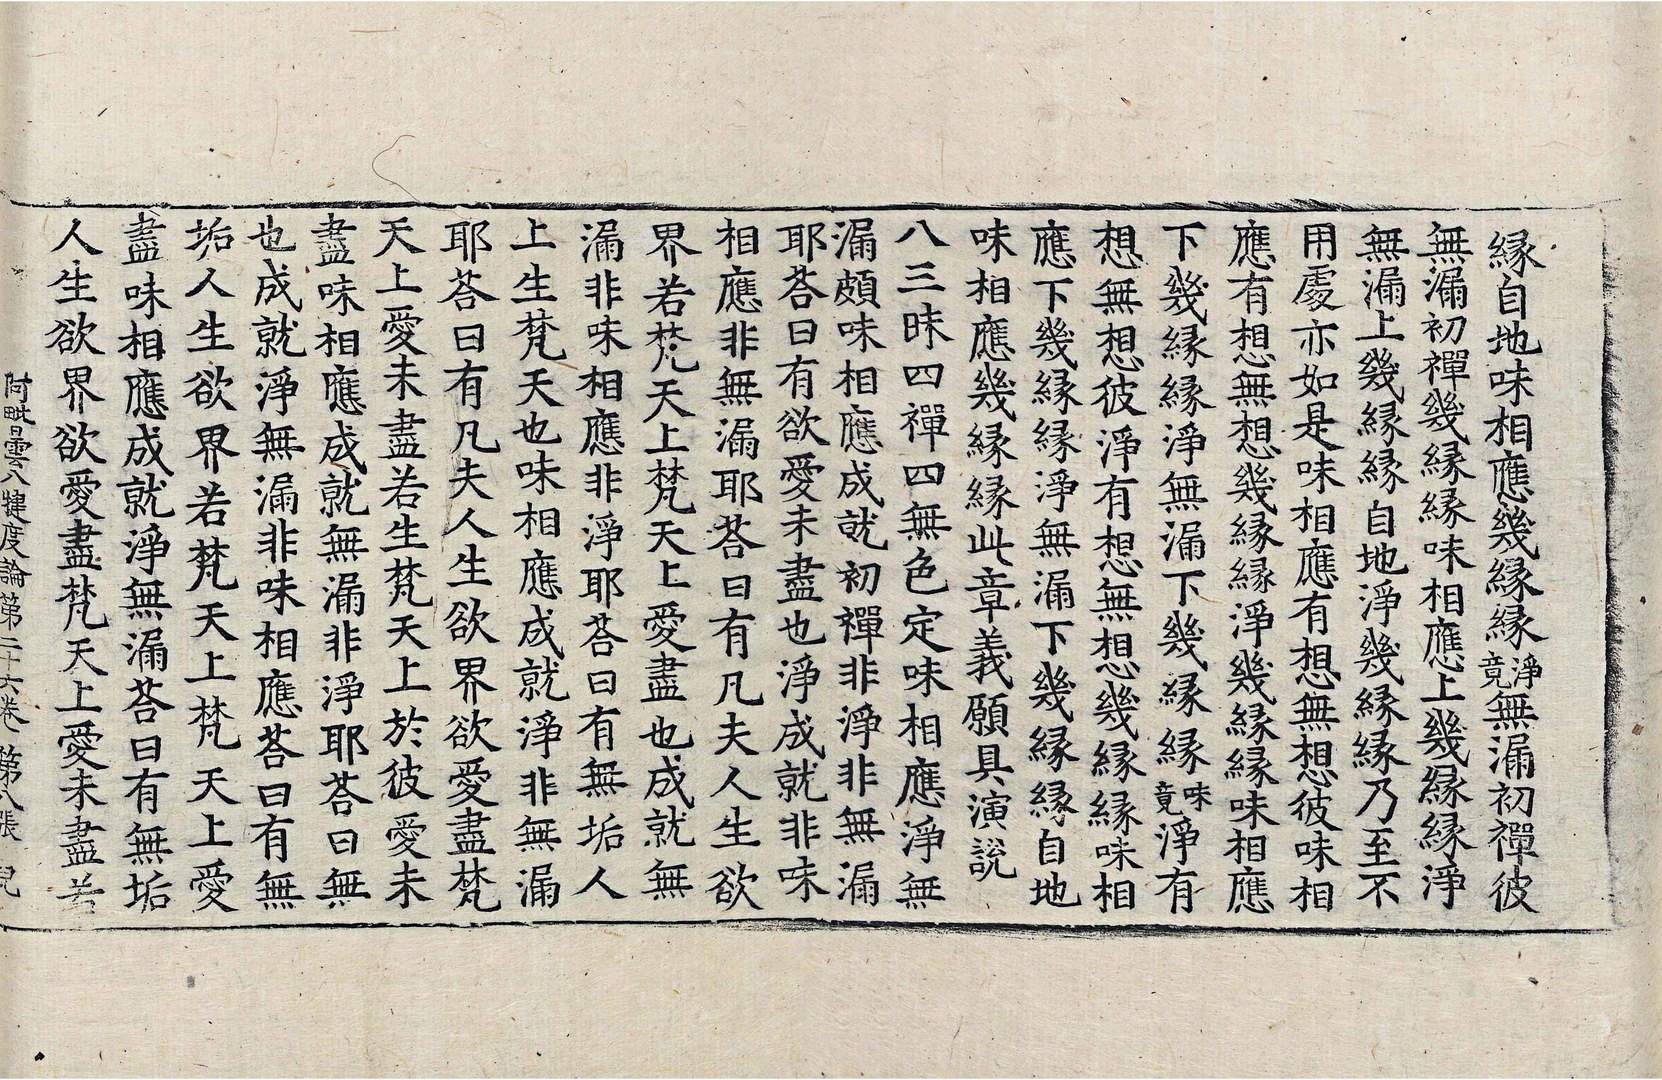 縁自地味相應幾縁縁淨竟無漏初禪彼
無漏初禪幾縁縁味相應上幾縁縁淨
無漏上幾縁縁自地淨幾縁縁乃至不
用處亦如是味相應有想無想彼味相
應有想無想幾縁縁淨幾縁縁味相應
下幾縁縁淨無漏下幾縁縁味竟淨有
想無想彼淨有想無想幾縁縁味相
應下幾縁縁淨無漏下幾縁縁自地
味相應幾縁縁此章義願具演說
八三昧四禪四無色定味相應淨無
漏頗味相應成就初禪非淨非無漏
耶荅曰有欲愛未盡也淨成就非味
相應非無漏耶荅曰有凡夫人生欲
界若梵天上梵天上愛盡也成就無
漏非味相應非淨耶荅曰有無垢人
上生梵天也味相應成就淨非無漏
耶荅曰有凡夫人生欲界欲愛盡梵
天上愛未盡若生梵天上於彼愛未
盡味相應成就無漏非淨耶荅曰無
也成就淨無漏非味相應荅曰有無
垢人生欲界若梵天上梵天上愛
盡味相應成就淨無漏荅曰有無垢
人生欲界欲愛盡梵天上愛未盡若
阿毗曇八犍度論第二十六卷 第八張 兒